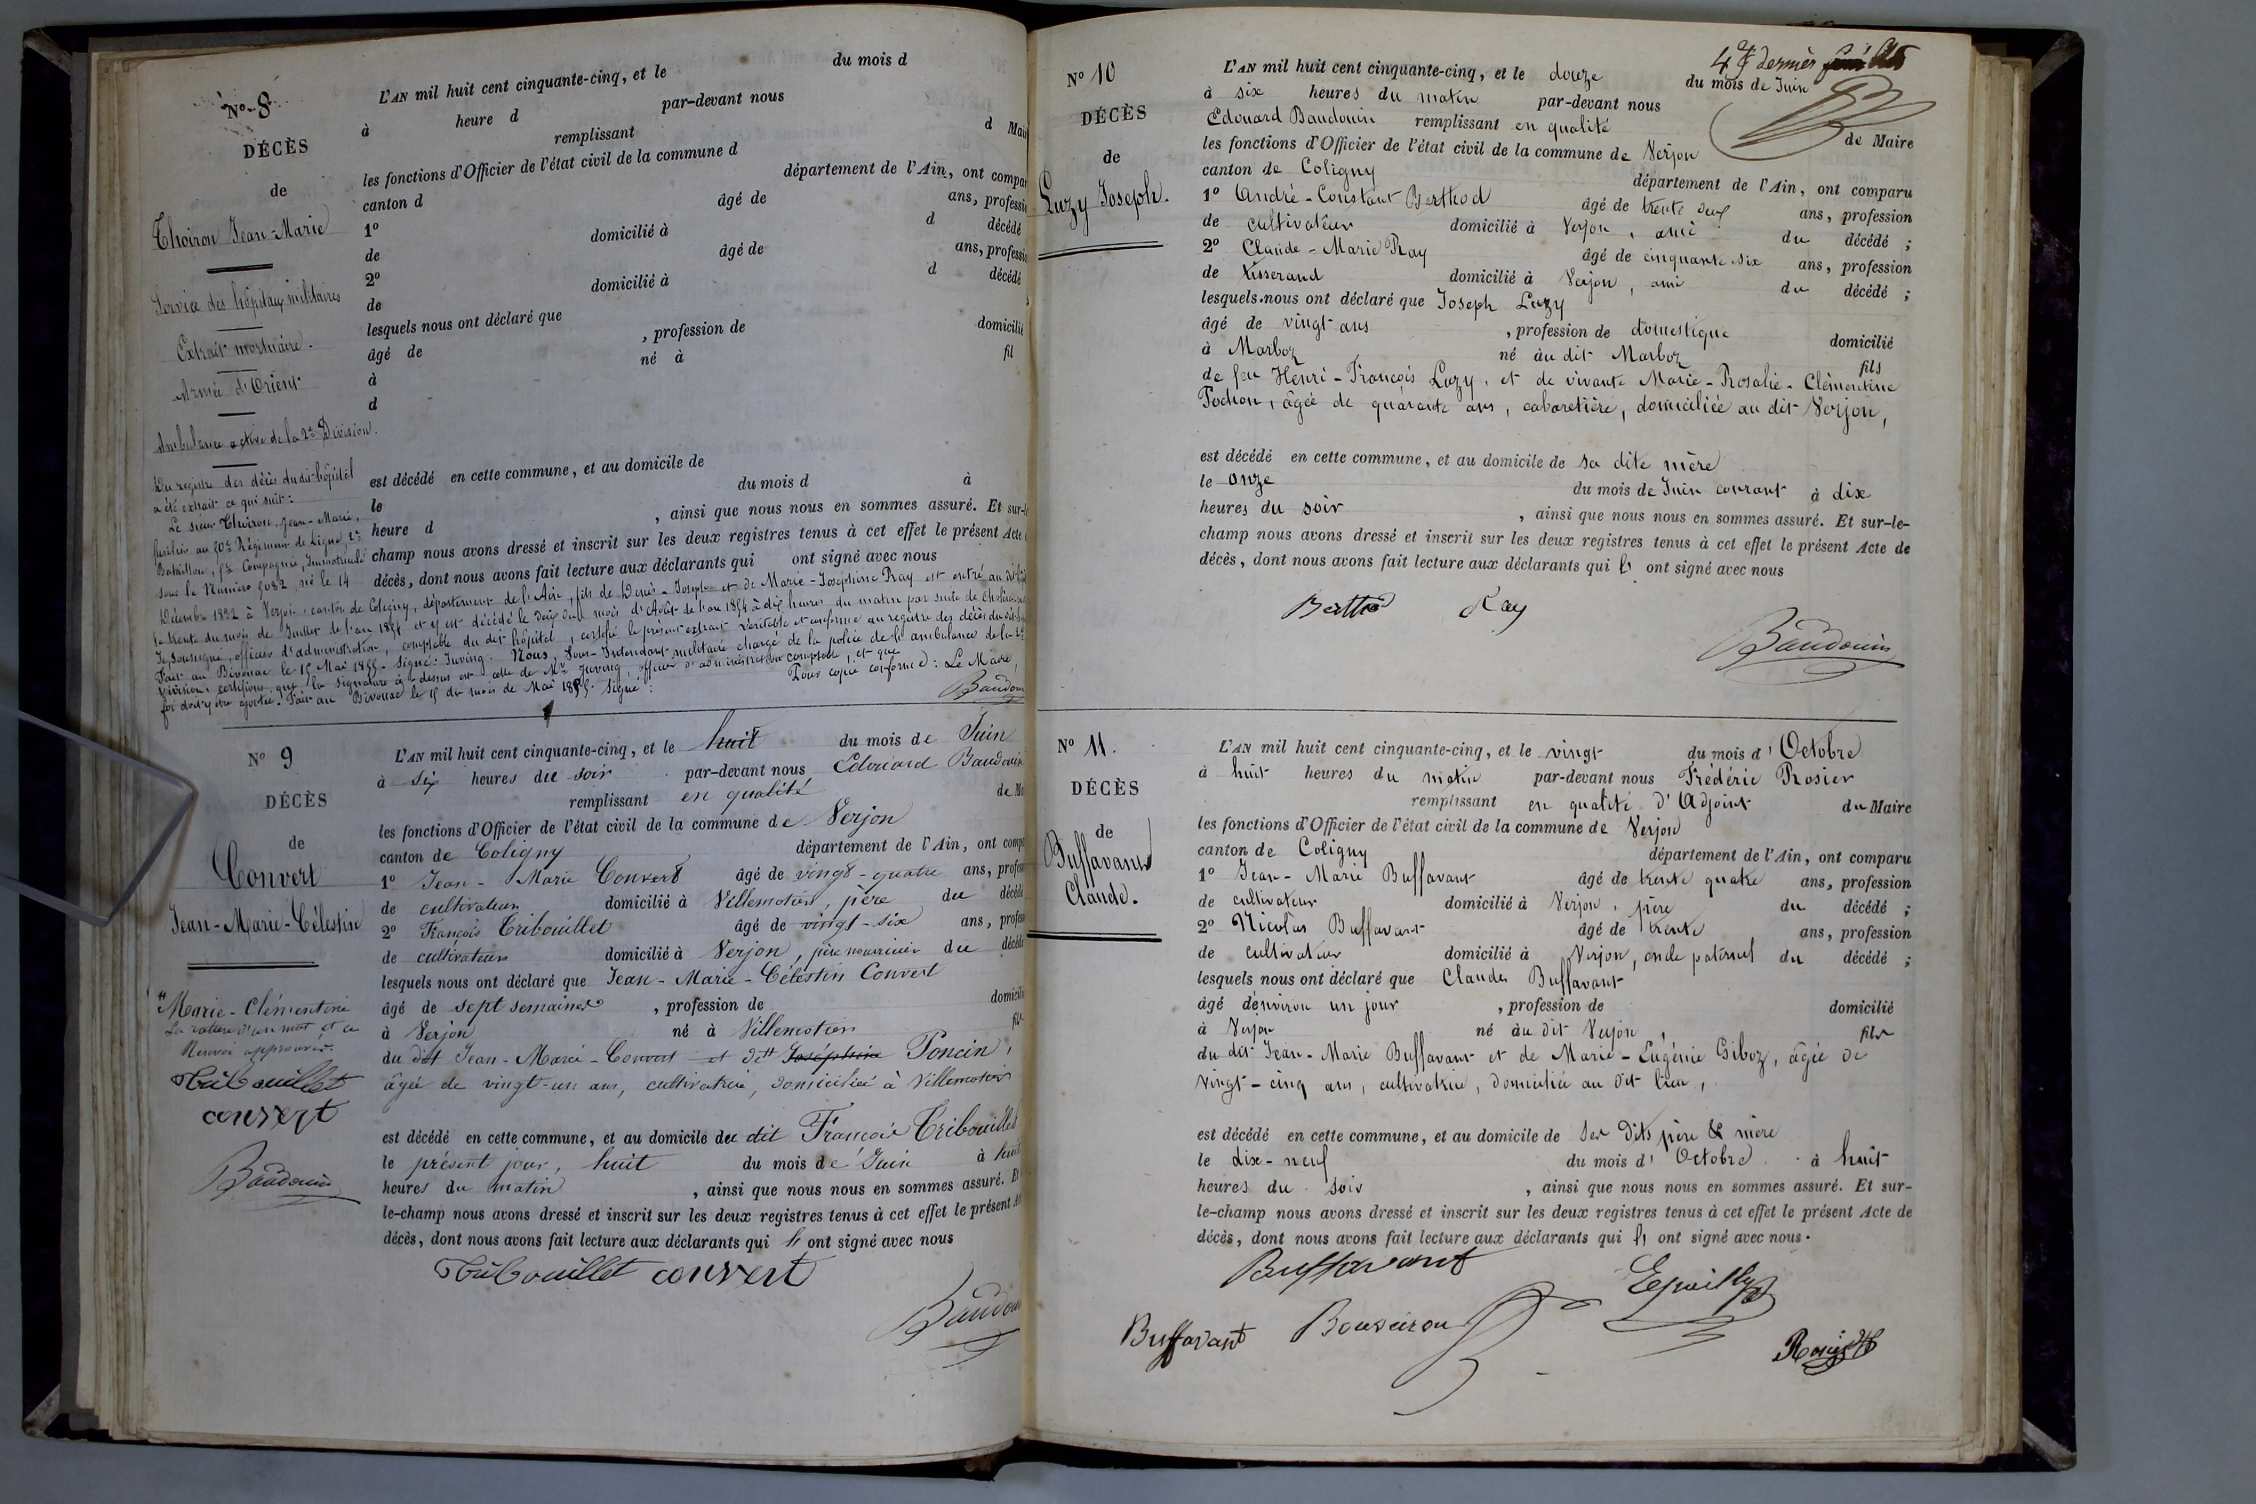 N° 8
DÉCÈS
de
Thoiron Jean-Marie
Service des hôpitaux militaires
Extrait mortuaire.
Armée d'Orient
Ambulance active de la 2e Division.
L'AN mil huit cent cinquante-cinq, et le du mois d
à heure d par-devant nous
remplissant d Mai
les fonctions d'Officier de l'état civil de la commune d
canton d département de l'Ain, ont compar
1° âgé de ans, professi
de domicilié à d décédé
2° âgé de ans, professi
de domicilié à d décédé
lesquels nous ont déclaré que
âgé de , profession de domicilié
à né à fil
d
est décédé en cette commune, et au domicile de
le du mois d à
heure d , ainsi que nous nous en sommes assuré. Et sur-l
champ nous avons dressé et inscrit sur les deux registres tenus à cet effet le présent Acte
décès, dont nous avons fait lecture aux déclarants qui ont signé avec nous
Du registre des décès du dit hôpital
a été extrait ce qui suit :
Le sieur Thoiron Jean-Marie,
fusilier au 20e Régiment de Ligne, 2e
Bataillon, Compagnie, Immatriculé
sous le Numéro 5082, né le 14
Décembre 1832 à Verjon, canton de Coligny, département de l'Ain, fils de Denis-Joseph et de Marie-Joséphine Ray est entré au dit
le trente du mois de Juillet de l'an 1854 et y est décédé le deux du mois d'Août de l'an 1854 à dix heures du matin par suite de choléra
Je, soussigné, officier d'administration, comptable du dit hôpital, certifie le présent extrait véritable et conforme au registre des décès du dit
Fait au Bivouac le 15 Mai 1855. Signé : Juving. Nous, Sous-Intendant militaire chargé de la police de l'ambulance de la 2e
Division, certifions que la signature ci-dessus est celle de Mr Juving, officier d'administration comptable, et que
foi doit y être ajoutée. Fait au Bivouac le 15 du mois de Mai 1855. Signé : Pour copie conforme : Le Maire,
Baudouin
N° 9
DÉCÈS
de
Convert
Jean-Marie-Célestin
Marie-Clémentine
La rature d'un mot et ce
Renvoi approuvés.
Tribouillet
convert
Baudouin
L'AN mil huit cent cinquante-cinq, et le huit du mois de Juin
à six heures du soir par-devant nous Edouard Baudouin
remplissant en qualité de Ma
les fonctions d'Officier de l'état civil de la commune de Verjon
canton de Coligny département de l'Ain, ont comp
1° Jean-Marie Convert âgé de vingt-quatre ans, profess
de cultivateur domicilié à Villemotier, père du décédé
2° François Tribouillet âgé de vingt-six ans, profess
de cultivateur domicilié à Verjon, père nourricier du décédé
lesquels nous ont déclaré que Jean-Marie-Célestin Convert
âgé de sept semaines , profession de domicili
à Verjon né à Villemotier fils
du dit Jean-Marie-Convert et de Joséphine Poncin,
âgée de vingt-un ans, cultivatrice, domiciliée à Villemotier
est décédé en cette commune, et au domicile du dit François Tribouillet
le présent jour, huit du mois de Juin à huit
heures du matin , ainsi que nous nous en sommes assuré. Et
le-champ nous avons dressé et inscrit sur les deux registres tenus à cet effet le présent
décès, dont nous avons fait lecture aux déclarants qui ont signé avec nous
Tribouillet convert
Baudouin
4e & dernier
N° 10
DÉCÈS
de
Luzy Joseph.
L'AN mil huit cent cinquante-cinq, et le douze du mois de Juin
à six heures du matin par-devant nous
Edouard Baudouin remplissant en qualité de Maire
les fonctions d'Officier de l'état civil de la commune de Verjon
canton de Coligny département de l'Ain, ont comparu
1° André-Constant Berthod âgé de trente neuf ans, profession
de cultivateur domicilié à Verjon, ami du décédé ;
2° Claude-Marie Ray âgé de cinquante six ans, profession
de tisserand domicilié à Verjon, ami du décédé ;
lesquels nous ont déclaré que Joseph Luzy
âgé de vingt ans , profession de domestique domicilié
à Marboz né au dit Marboz fils
de feu Henri-François Luzy, et de vivante Marie-Rosalie-Clémentine
Pochon, âgée de quarante ans, cabaretière, domiciliée au dit Verjon,
est décédé en cette commune, et au domicile de sa dite mère
le onze du mois de Juin courant à dix
heures du soir , ainsi que nous nous en sommes assuré. Et sur-le-
champ nous avons dressé et inscrit sur les deux registres tenus à cet effet le présent Acte de
décès, dont nous avons fait lecture aux déclarants qui ont signé avec nous
Berthod Ray
Baudouin
N° 11.
DÉCÈS
de
Buffavant
Claude.
L'AN mil huit cent cinquante-cinq, et le vingt du mois d'Octobre
à huit heures du matin par-devant nous Frédéric Rosier
remplissant en qualité d'Adjoint du Maire
les fonctions d'Officier de l'état civil de la commune de Verjon
canton de Coligny département de l'Ain, ont comparu
1° Jean-Marie Buffavant âgé de trente quatre ans, profession
de cultivateur domicilié à Verjon, père du décédé ;
2° Nicolas Buffavant âgé de trente ans, profession
de cultivateur domicilié à Verjon, oncle paternel du décédé ;
lesquels nous ont déclaré que Claude Buffavant
âgé d'environ un jour , profession de domicilié
à Verjon né au dit Verjon, fils
du dit Jean-Marie Buffavant et de Marie-Eugénie Giboz, âgée de
vingt-cinq ans, cultivatrice, domiciliée au dit lieu,
est décédé en cette commune, et au domicile de ses dits père & mère
le dix-neuf du mois d'Octobre à huit
heures du soir , ainsi que nous nous en sommes assuré. Et sur-
le-champ nous avons dressé et inscrit sur les deux registres tenus à cet effet le présent Acte de
décès, dont nous avons fait lecture aux déclarants qui ont signé avec nous.
Buffavant
Buffavant